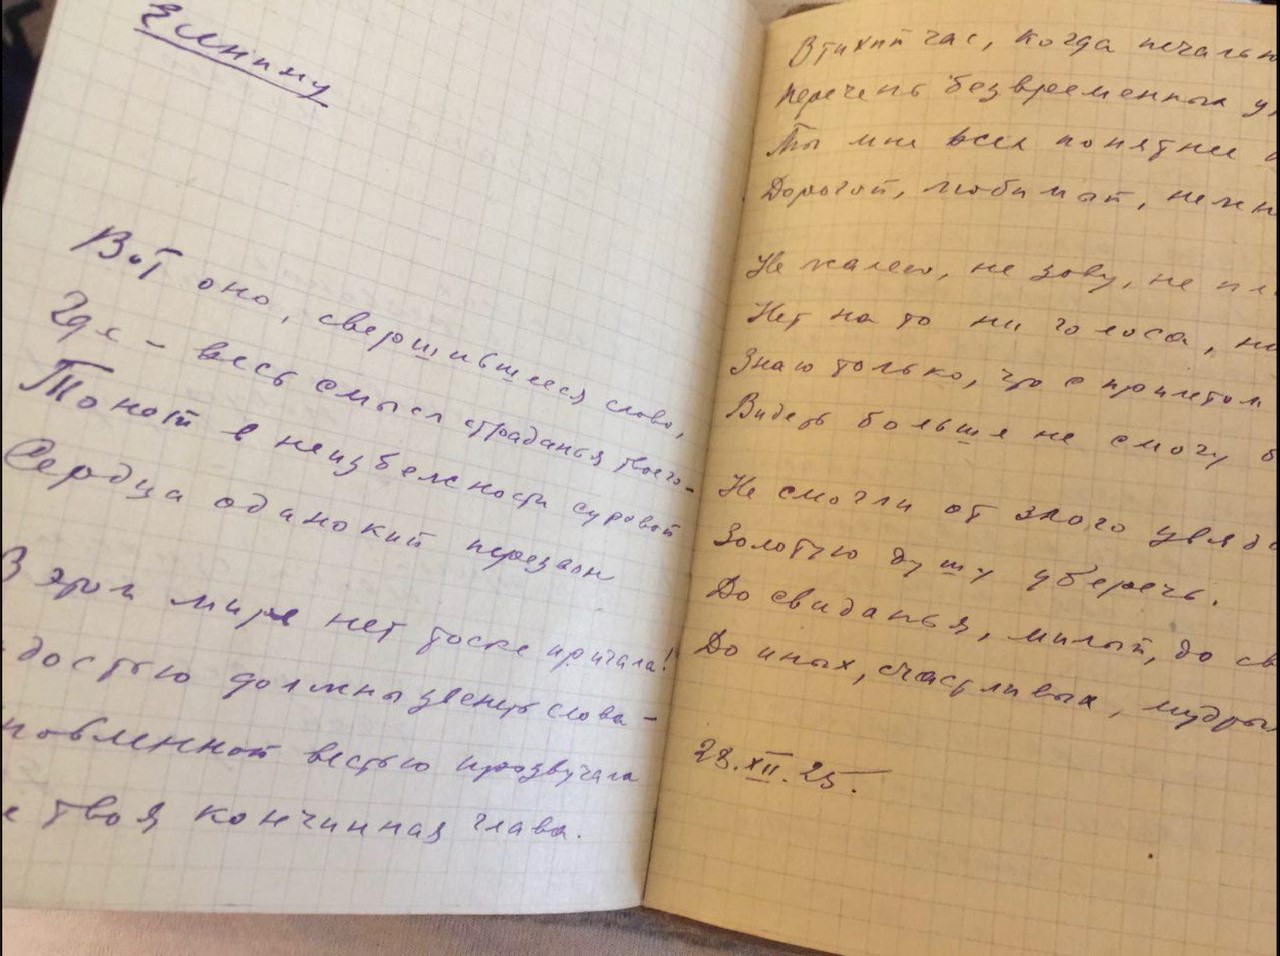 Есенину
Вот оно, свершившееся слово,
Где – весь смысл страданья твоего –
Тонот в неизбежности суровой
Сердца одинокий перезвон
В этом мире нет тоске причала!
достью должны звенеть слова –
новленной вестью прозвучала
твоя кончинная глава.
В тихий час, когда печально
Перечень безвременных
Ты мне всех понятнее
Дорогой, любимый, нежн
Не жалею, не зову, не пла
Нет на то ни голоса, ни
Знаю только, что с приметой
Видеть больше не смогу
Не смогли от злого увяда
Золотую душу уберечь.
До свиданья, милый, до св
До иных, счастливых, мудры
28.XII.25.